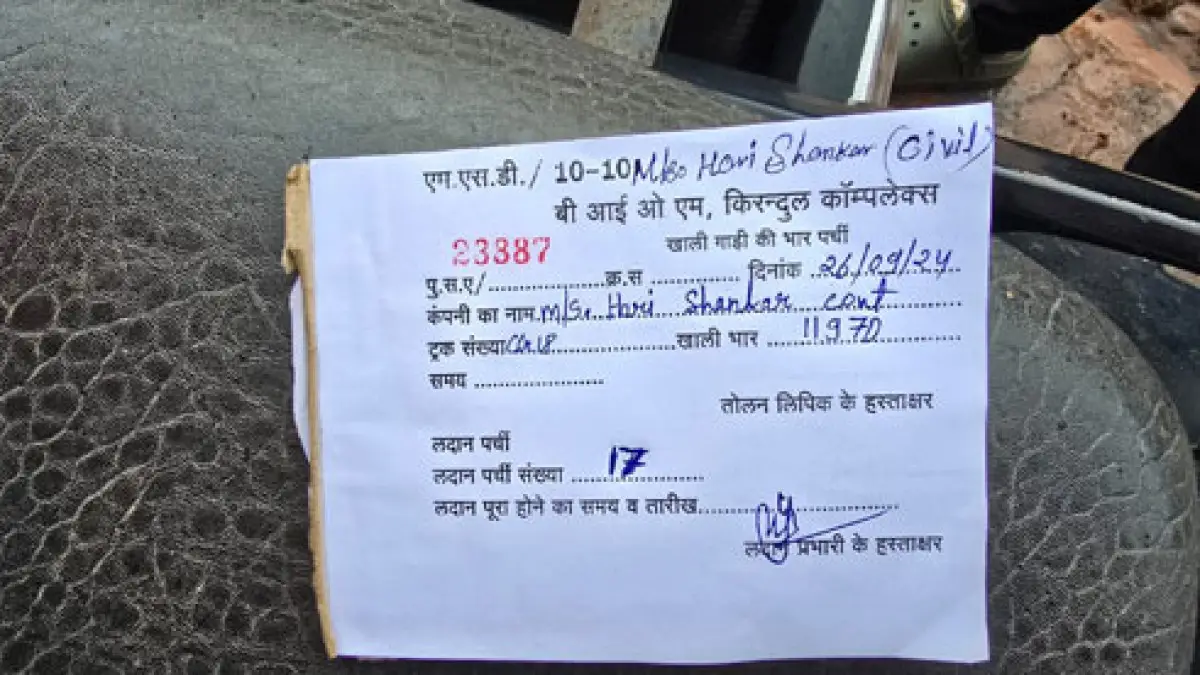 एम.एस.डी./ 10-10 M/s. Hari Shankar (Civil)
बी आई ओ एम, किरन्दुल कॉम्पलेक्स
23387 खाली गाड़ी की भार पर्ची
पु.स.ए/....................क्र.स ............... दिनांक ..26/09/24..
कंपनी का नाम.M/s. Hari Shankar cont..........
ट्रक संख्या......................खाली भार ......11970............
समय ......................
तोलन लिपिक के हस्ताक्षर
लदान पर्ची
लदान पर्ची संख्या ......17..............
लदान पूरा होने का समय व तारीख..............................
लदान प्रभारी के हस्ताक्षर